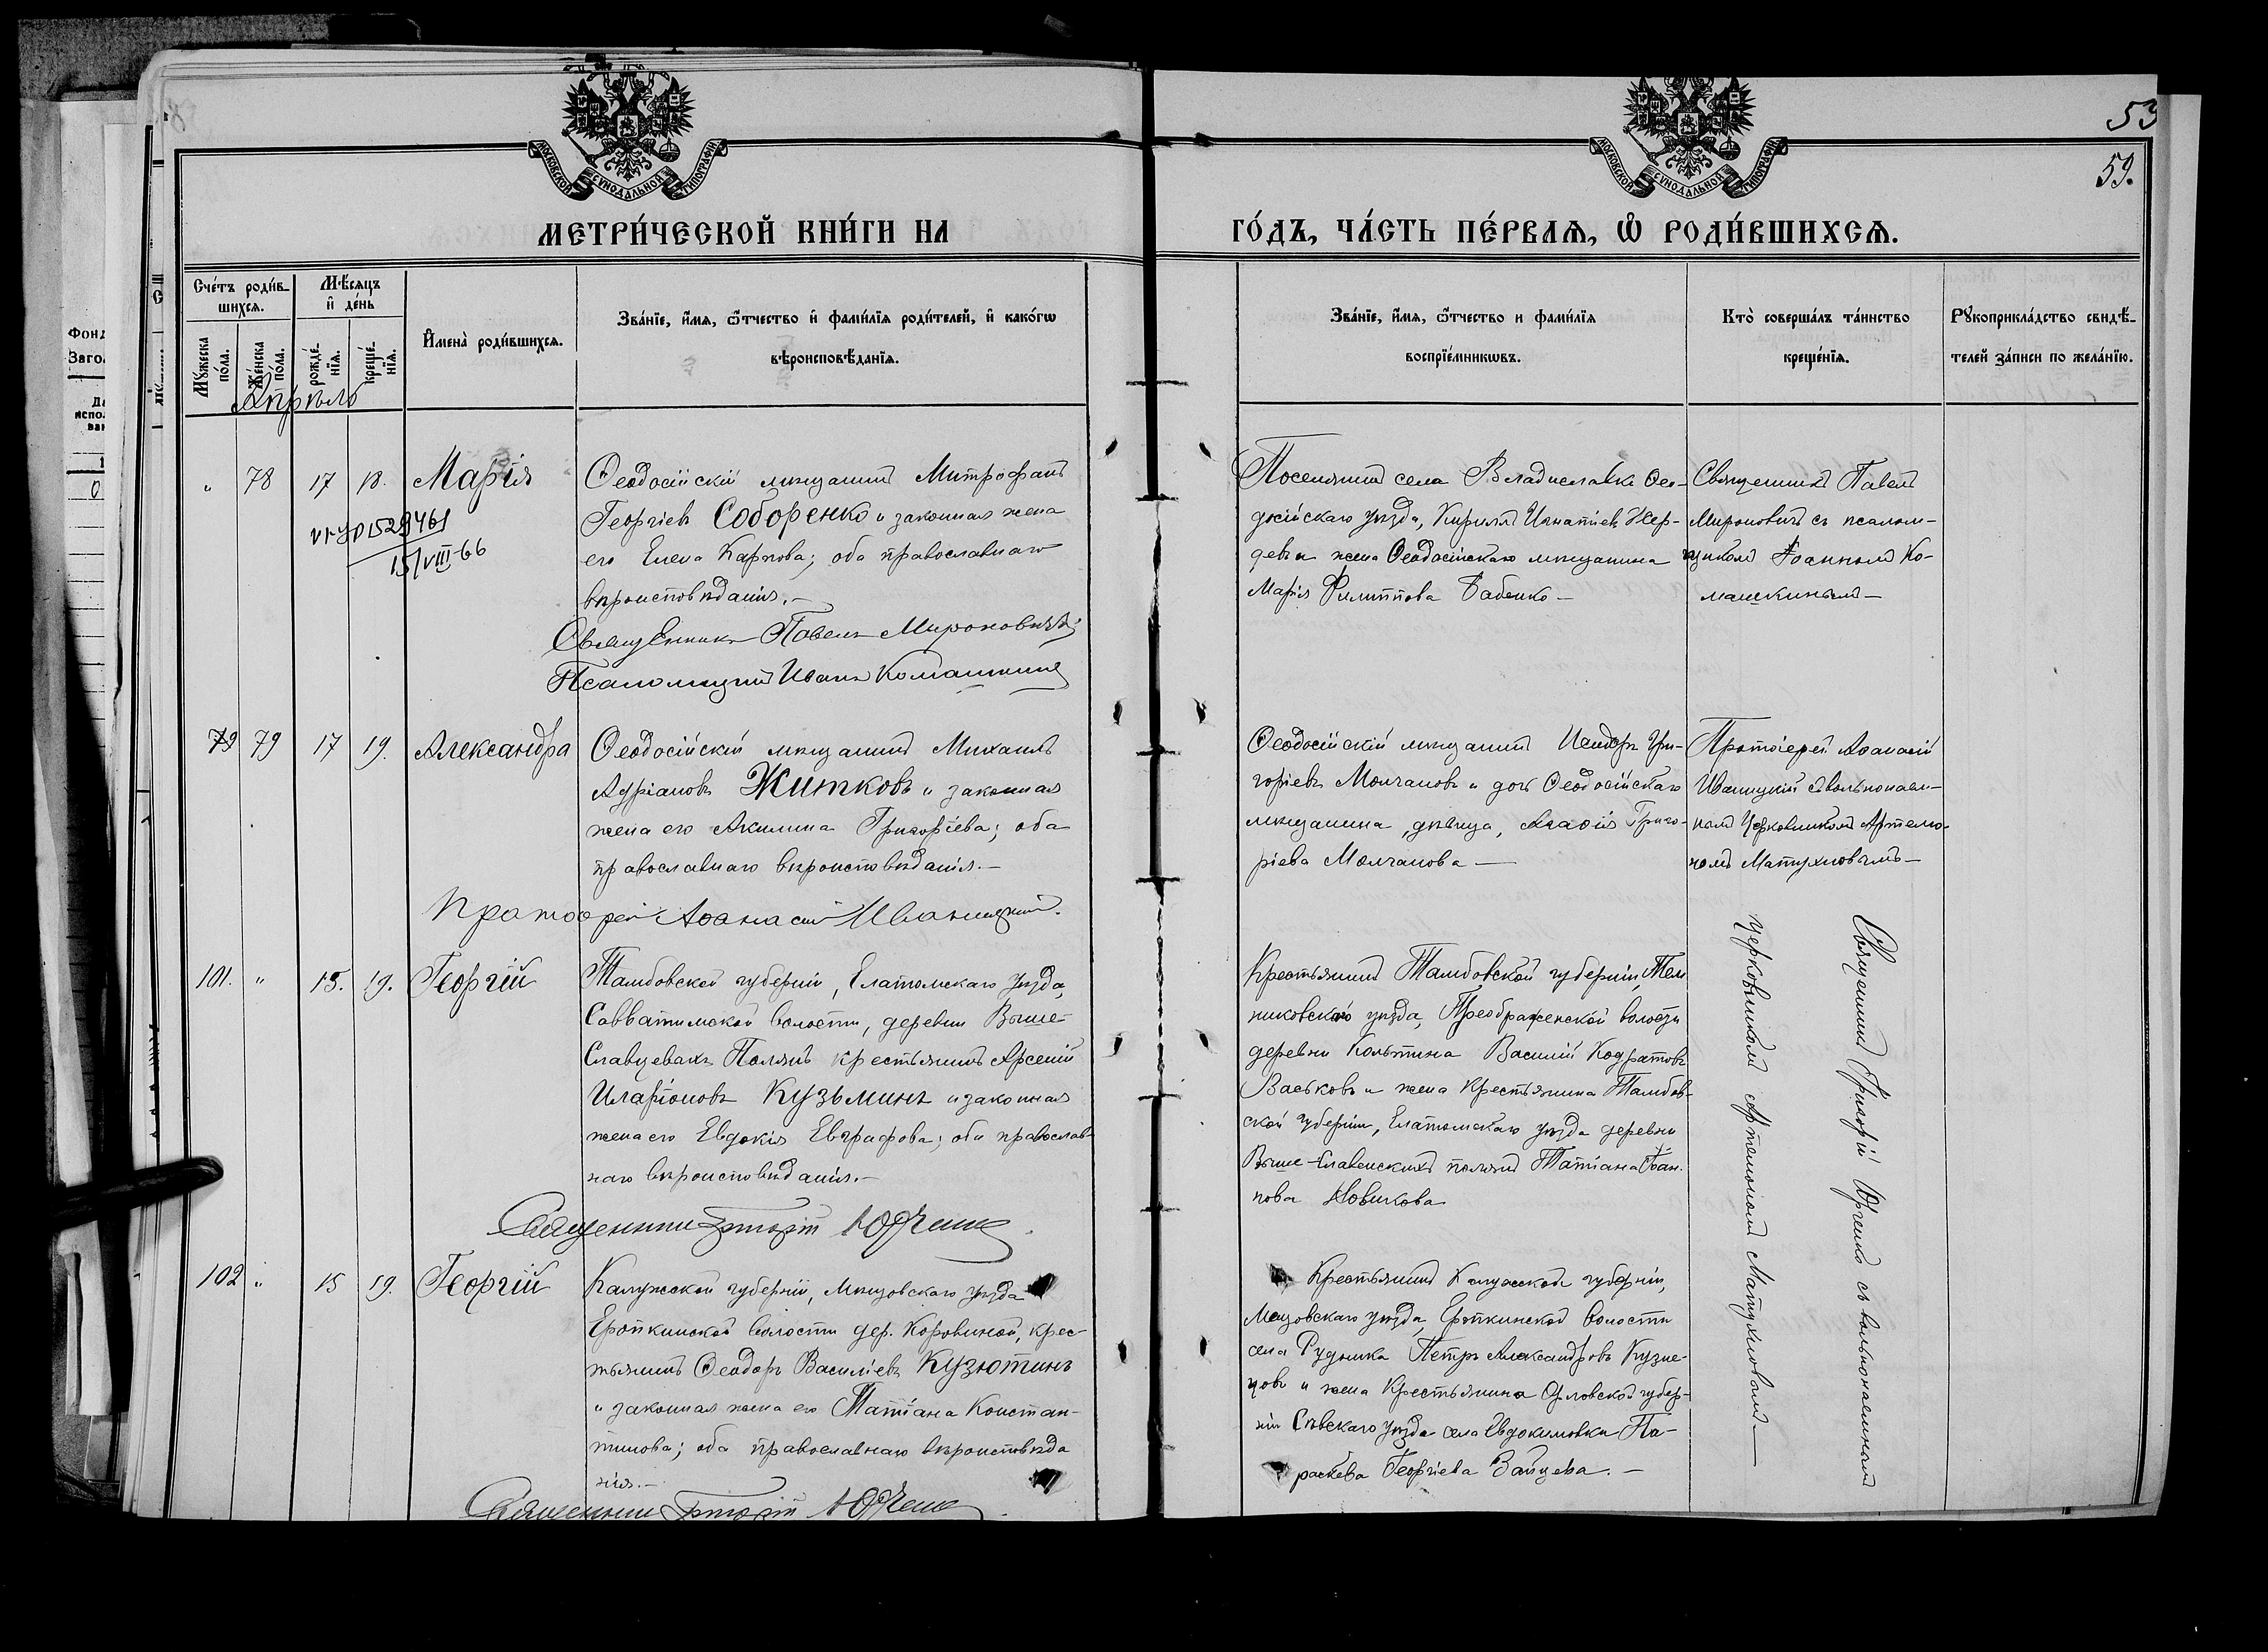 53
59.
МОСКОВСКОЙ СУНОДАЛЬНОЙ ТИПОГРАФІИ
МОСКОВСКОЙ СУНОДАЛЬНОЙ ТИПОГРАФІИ
МЕТРИ́ЧЕСКОЙ КНИ́ГИ НА
ГО́ДЪ, ЧА́СТЬ ПЕ́РВАѦ, Ѡ РОДИ́ВШИХСѦ.
Счéтъ роди́в-
шихсѧ.
Мꙋжеска пóла.
Жéнска пóла.
Мѣ́сѧцъ
и҆ дéнь
рождé-
нїѧ.
крещé-
нїѧ.
И҆мена̀ роди́вшихсѧ.
Зва́нїе, и҆́мѧ, ѻ҆́тчество и҆ фами́лїѧ роди́телей, и҆ како́гѡ
вѣроисповѣ́данїѧ.
Зва́нїе, и҆́мѧ, ѻ҆́тчество и фами́лїѧ
воспрїе́мникѡвъ.
Кто̀ соверша́лъ та́инство
креще́нїѧ.
Рꙋкоприкла́дство свидѣ́-
телей за́писи по жела́нїю.
Апрѣль
" 78 17 18. Марія
15/VIII-66
Ѳеодосійскій мѣщанинъ Митрофанъ
Георгіевъ Соборенко и законная жена
его Елена Карпова; оба православнаго
вѣроисповѣданія.—
Священникъ Павелъ Мироновичъ;
Псаломщикъ Иванъ Комашкинъ
Поселянинъ села Владиславки Ѳео-
досійскаго уѣзда, Кириллъ Игнатіевъ Жер-
девъ и жена Ѳеодосійскаго мѣщанина
Марія Филиппова Бабенко —
Священникъ Павелъ
Мироновичъ съ псалом-
щикомъ Іоанномъ Ко-
машкинымъ —
79 79 17 19. Александра
Ѳеодосійскій мѣщанинъ Михаилъ
Адріановъ Житковъ и законная
жена его Акилина Григоріева; оба
православнаго вѣроисповѣданія.—
Протоерей Аѳанасій Иваницкій.
Ѳеодосійскій мѣщанинъ Исидоръ Гри-
горіевъ Молчановъ и дочь Ѳеодосійскаго
мѣщанина, дѣвица, Агафія Григо-
ріева Молчанова —
Протоіерей Аѳанасій
Иваницкій съ вольнонаем-
нымъ Церковникомъ Артемо-
номъ Матухновымъ —
101. " 15. 19. Георгій
Тамбовской губерніи, Елатомскаго уѣзда,
Савватимской волости, деревни Выше-
Славцевахъ Полянъ крестьянинъ Арсеній
Иларіоновъ Кузьминъ и законная
жена его Евдокія Евграфова; оба православ-
наго вѣроисповѣданія.—
Священникъ Григорій Юрченко
Крестьянинъ Тамбовской губерніи, Тем
никовскаго уѣзда, Преображенской волости
деревни Кольтина Василій Кодратовъ
Васьковъ и жена Крестьянина Тамбов-
ской губерніи, Елатомскаго уѣзда деревни
Выше-Славенскихъ полянъ Татіана Іоан-
нова Новикова
Священникъ Григорій Юрченко съ вольнонаемнымъ
церковникомъ Артемономъ Матухновымъ —
102 " 15 19. Георгій
Калужской губерніи, Мещовскаго уѣзда
Еропкинской волости дер. Коровиной, крес-
тьянинъ Ѳеодоръ Василіевъ Кузютинъ
и законная жена его Татіана Констан-
тинова; оба православнаго вѣроисповѣда
нія.—
Священникъ Григорій Юрченко
Крестьянинъ Калужской губерніи,
Мещовскаго уѣзда, Еропкинской волости
села Рудника Петръ Александровъ Кузне-
цовъ и жена Крестьянина Орловской губер-
ніи Сѣвскаго уѣзда села Евдокимовки Па-
раскева Георгіева Зайцева. —